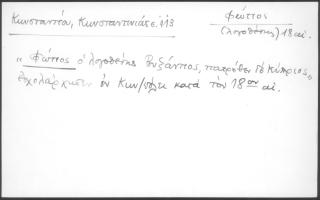 Κωνσταντᾶ, Κωνσταντινιάς σ. 113
φώτιος
(λογοθέτης) 18 αἰ.
" Φώτιος ὁ λογοθέτης Βυζάντιος, πατρόθεν δὲ Κύπριος,
ἐσχολάρχησεν ἐν Κων/πόλει κατὰ τὸν 18ον αἰ.